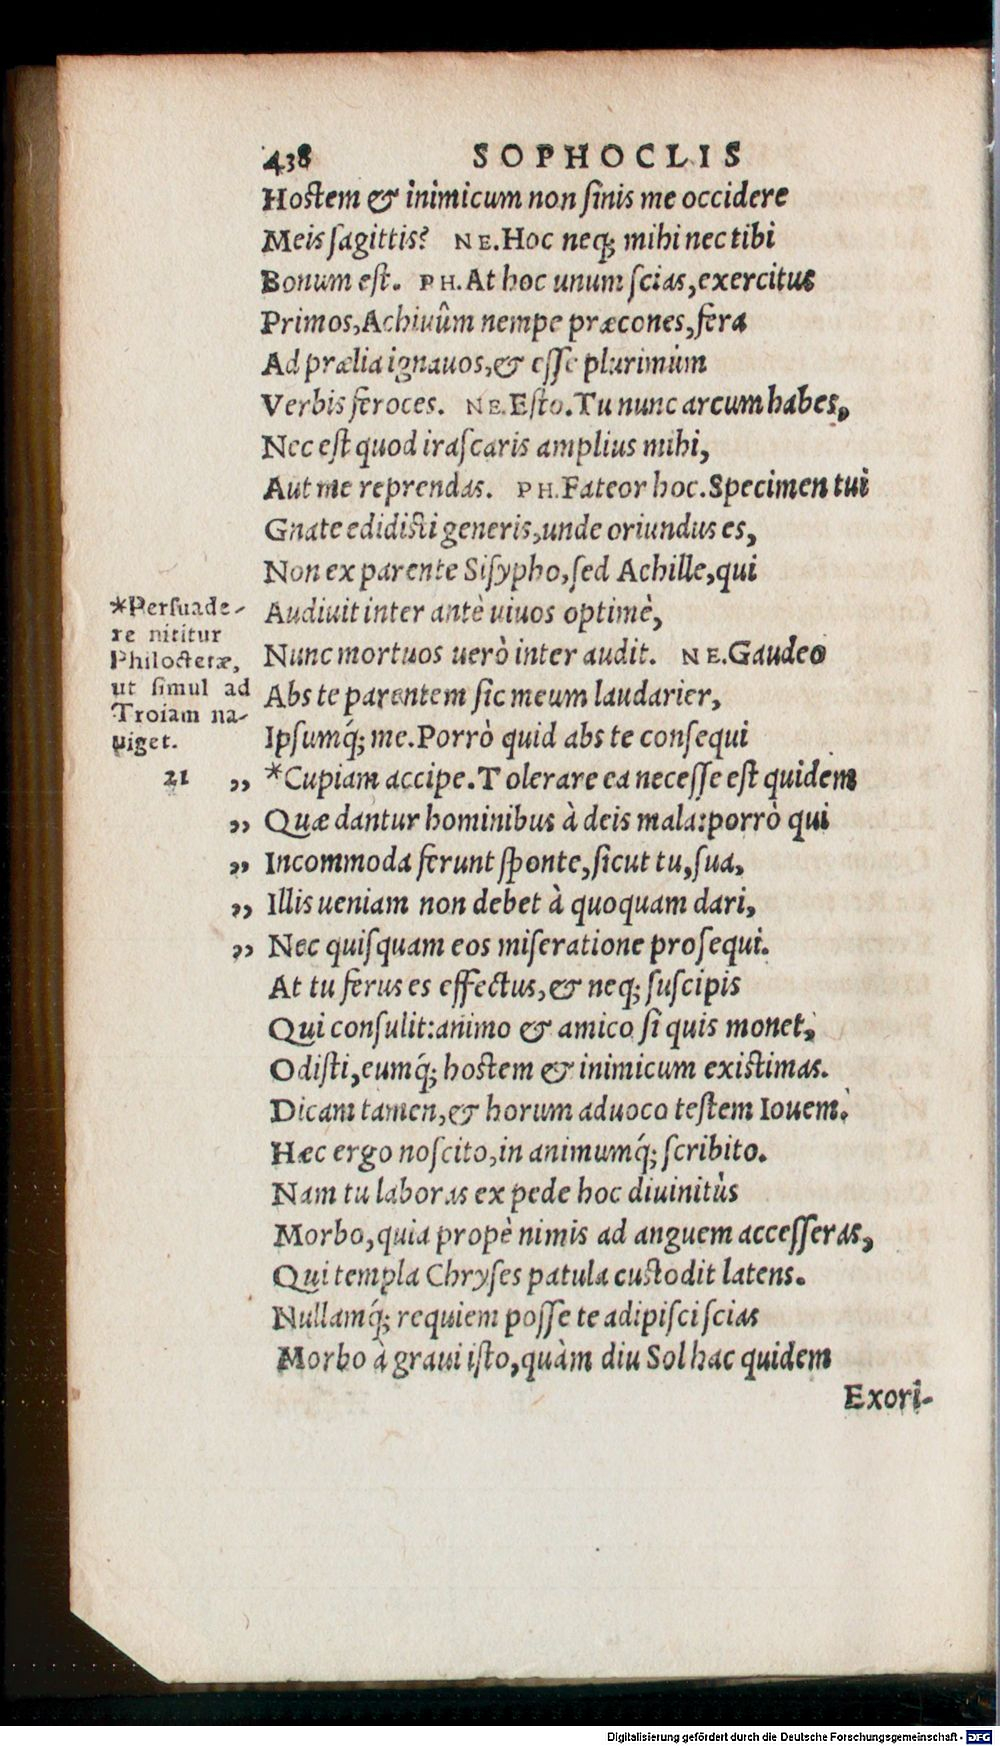 438 SOPHOCLIS
Hostem & inimicum non ſinis me occidere
Meis ſagittis? NE. Hoc neq; mihi nec tibi
Bonum eſt. PH. At hoc unum ſcias, exercitus
Primos, Achiuûm nempe præcones, fera
Ad prælia ignauos, & eſſe plurimùm
Verbis feroces. NE. Eſto. Tu nunc arcum habes,
Nec eſt quod iraſcaris amplius mihi,
Aut me reprendas. PH. Fateor hoc. Specimen tui
Gnate edidiſti generis, unde oriundus es,
Non ex parente Siſypho, ſed Achille, qui
Audiuit inter antè uiuos optimè,
Nunc mortuos uerò inter audit. NE. Gaudeo
Abs te parentem ſic meum laudarier,
Ipſumq́; me. Porrò quid abs te conſequi
*Perſuade-
re nititur
Philoctetæ,
ut ſimul ad
Troiam na-
uiget.
21 „ *Cupiam accipe. Tolerare ea neceſſe eſt quidem
„ Quæ dantur hominibus à deis mala: porrò qui
„ Incommoda ferunt ſponte, ſicut tu, ſua,
„ Illis ueniam non debet à quoquam dari,
„ Nec quiſquam eos miſeratione proſequi.
At tu ferus es effectus, & neq; ſuſcipis
Qui conſulit: animo & amico ſi quis monet,
Odiſti, eumq́; hoſtem & inimicum exiſtimas.
Dicam tamen, & horum aduoco teſtem Iouem.
Hæc ergo noſcito, in animumq́; ſcribito.
Nam tu laboras ex pede hoc diuinitùs
Morbo, quia propè nimis ad anguem acceſſeras,
Qui templa Chryſes patula cuſtodit latens.
Nullamq́; requiem poſſe te adipiſci ſcias
Morbo à graui iſto, quàm diu Sol hac quidem
Exori-
Digitalisierung gefördert durch die Deutsche Forschungsgemeinschaft - DFG